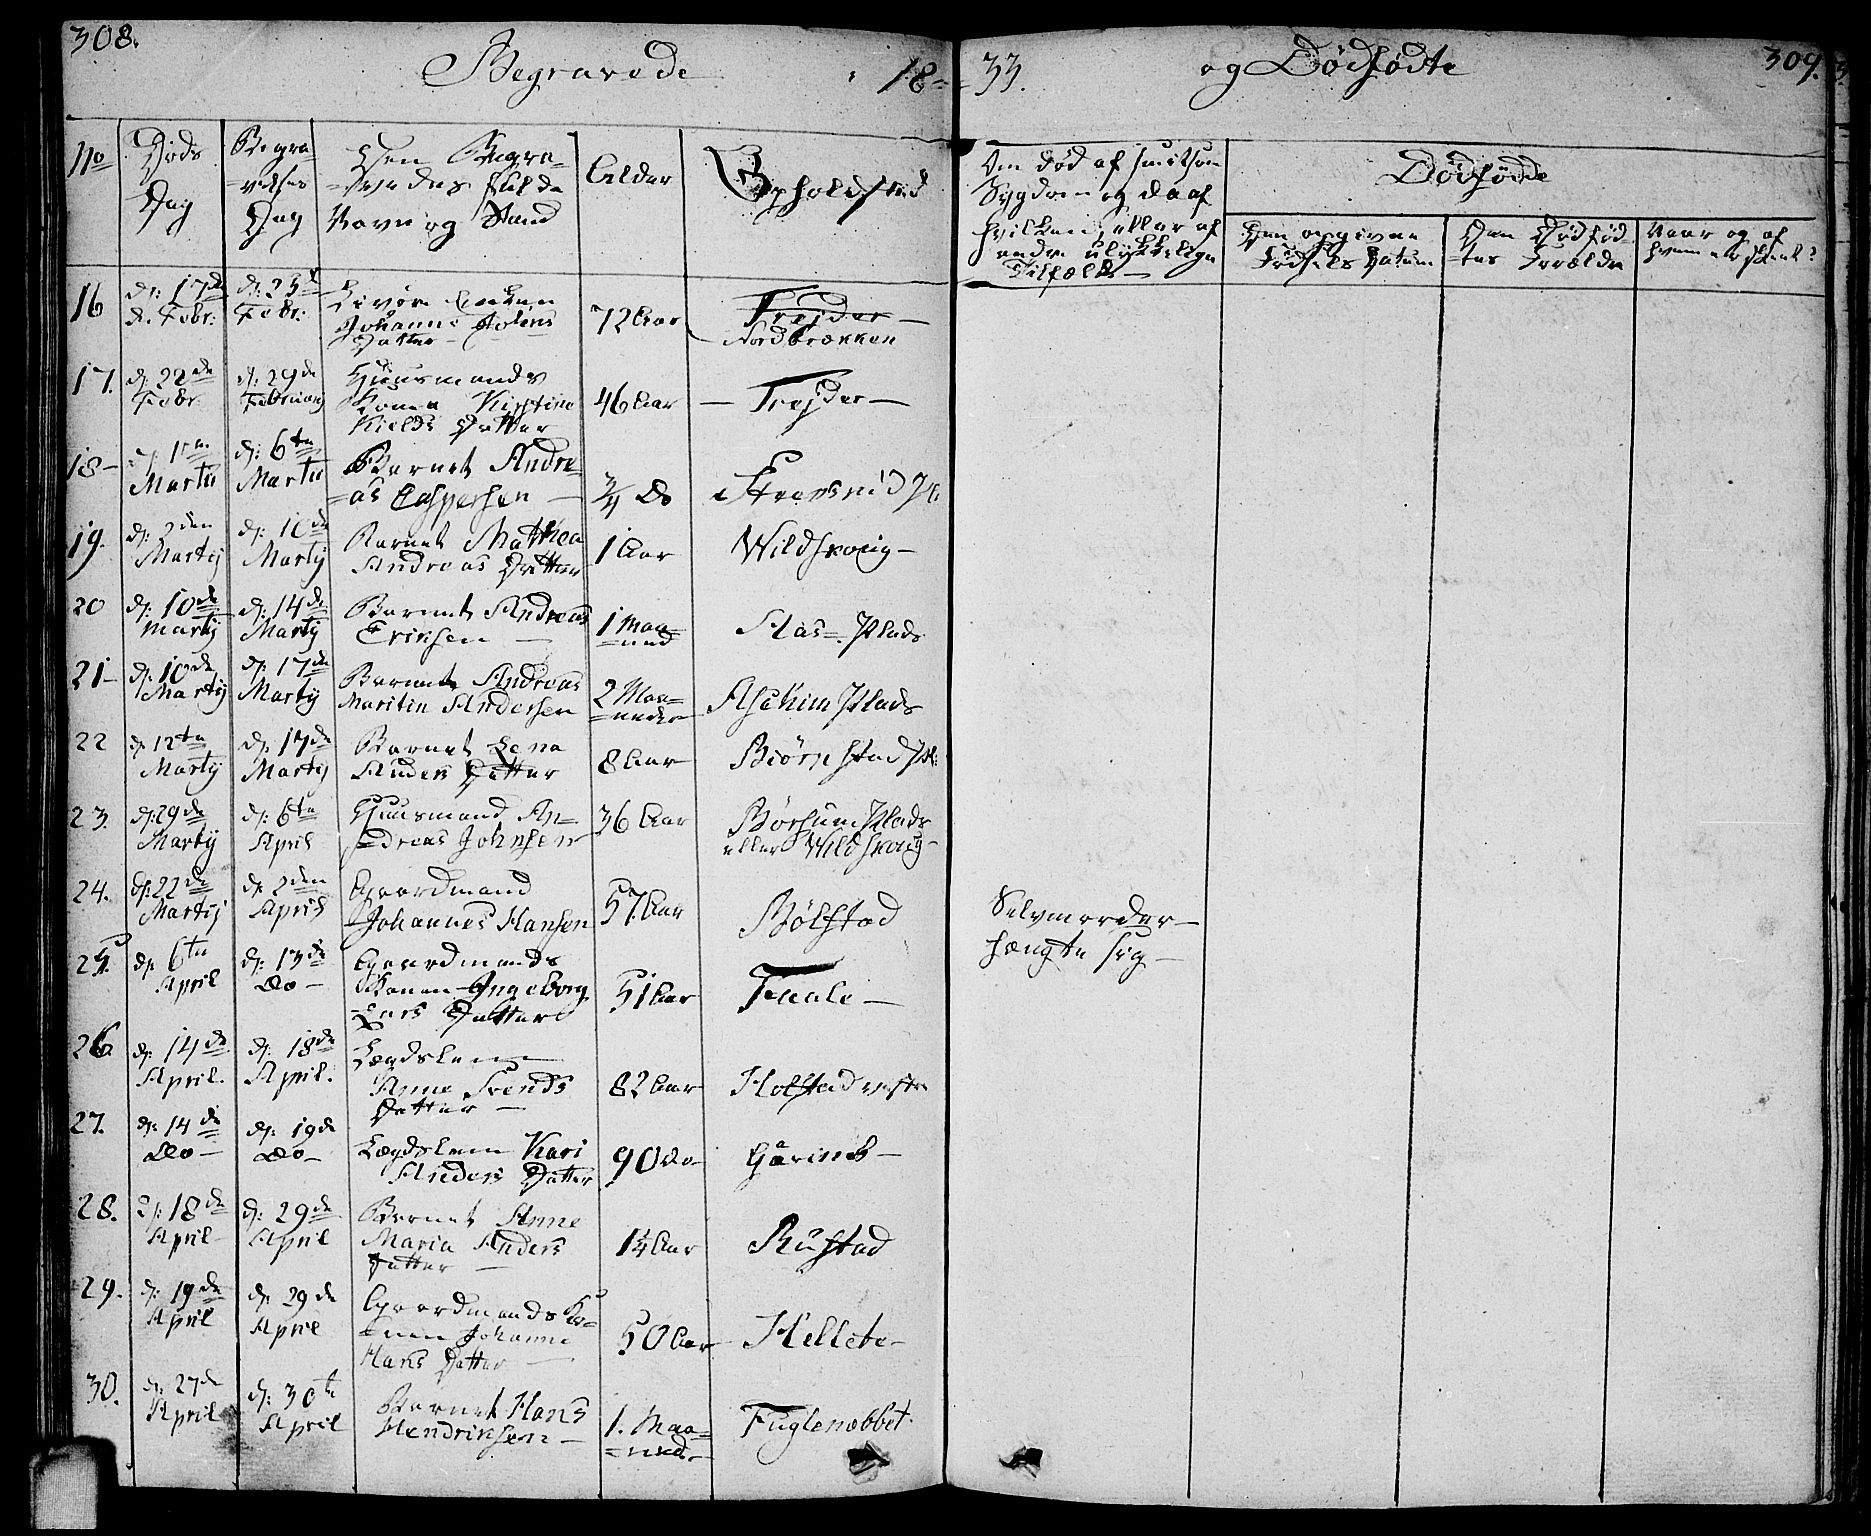 308.
Begravede 18-
-33. og Dødfødte 309.
No
Døds
Dag
Begra-
-velses
Dag
Den Begra-
-vedes fulde
Navn og Stand
Alder
Opholdsted
Om død af smitsom
Sygdom og da af
hvilken, eller af
andre ulykkelige
Tilfælde
Dødfødde
Den opgivne
Fødsels Datum
Den Dødfød-
-tes Forældre
Naar og af
hvem er skeet?
16
d: 17de
d. Febr:
d: 23d
Febr:
Enken
Johanne Johns
Datter
72 Aar
Trejder
Nordbrækken
17.
d: 22de
Febr
d: 29de
February
Huusmands
Kone Kirstine
Kields Datter
46 Aar
Trejder
18-
Martii
d: 6te
Martii
Barnet Andre-
=as Caspersen
3/4 Do
19.
d: 2den
Martij
d: 10de
Martij
Barnet Mathea
Andreas Datter
1 Aar
Wildskoug
20
d: 10de
Martij
d: 14de
Martij
Barnet Andreas
Ericksen
1 Maa-
=ned
Aas=Plads
21-
d: 10de
Martij
d: 17de
Martij
Barnet Andreas
Maritin Andersen
2 Maa-
=neder
Aschim Plads
22
d: 12te
Martij
d: 17de
Martij
Barnet Lena
Anders Datter
8 Aar
Biørnstad Pl:
23.
d: 29de
Martij
d: 6te
April
Huusmand An-
=dreas Johnsen
36 Aar
Børsum Plads
eller Wildskoug
24.
d: 22de
Martij
d: 2den
April
Gaardmand
Johannes Hansen
57. Aar
Bølstad
Selvmorder
hængte sig
25.
d: 6te
April
d: 13de
Do
Gaardmands
Konen Ingeborg
Lars Datter
51 Aar
Taale
26
d: 14de
April.
d: 18de
April.
Lægdslem
Anne Svends
Datter
82 Aar
Holstad vestre
27.
d: 14de
Do
d: 19de
Do
Lægdslem Kari
Anders Datter
90 Do
28.
d: 18de
April
d: 29de
April
Barnet Anne
Maria Anders
Datter
1 1/4 Aar
Rustad
29.
d: 19de
April
d: 29de
April
Gaardmands Ko-
=nen Johanne
Hans Datter
50 Aar
Hellete
30.
d: 27de
April
d: 30te
April
Barnet Hans
Hendrichsen
1. Maa-
=ned
Fuglenæbbet